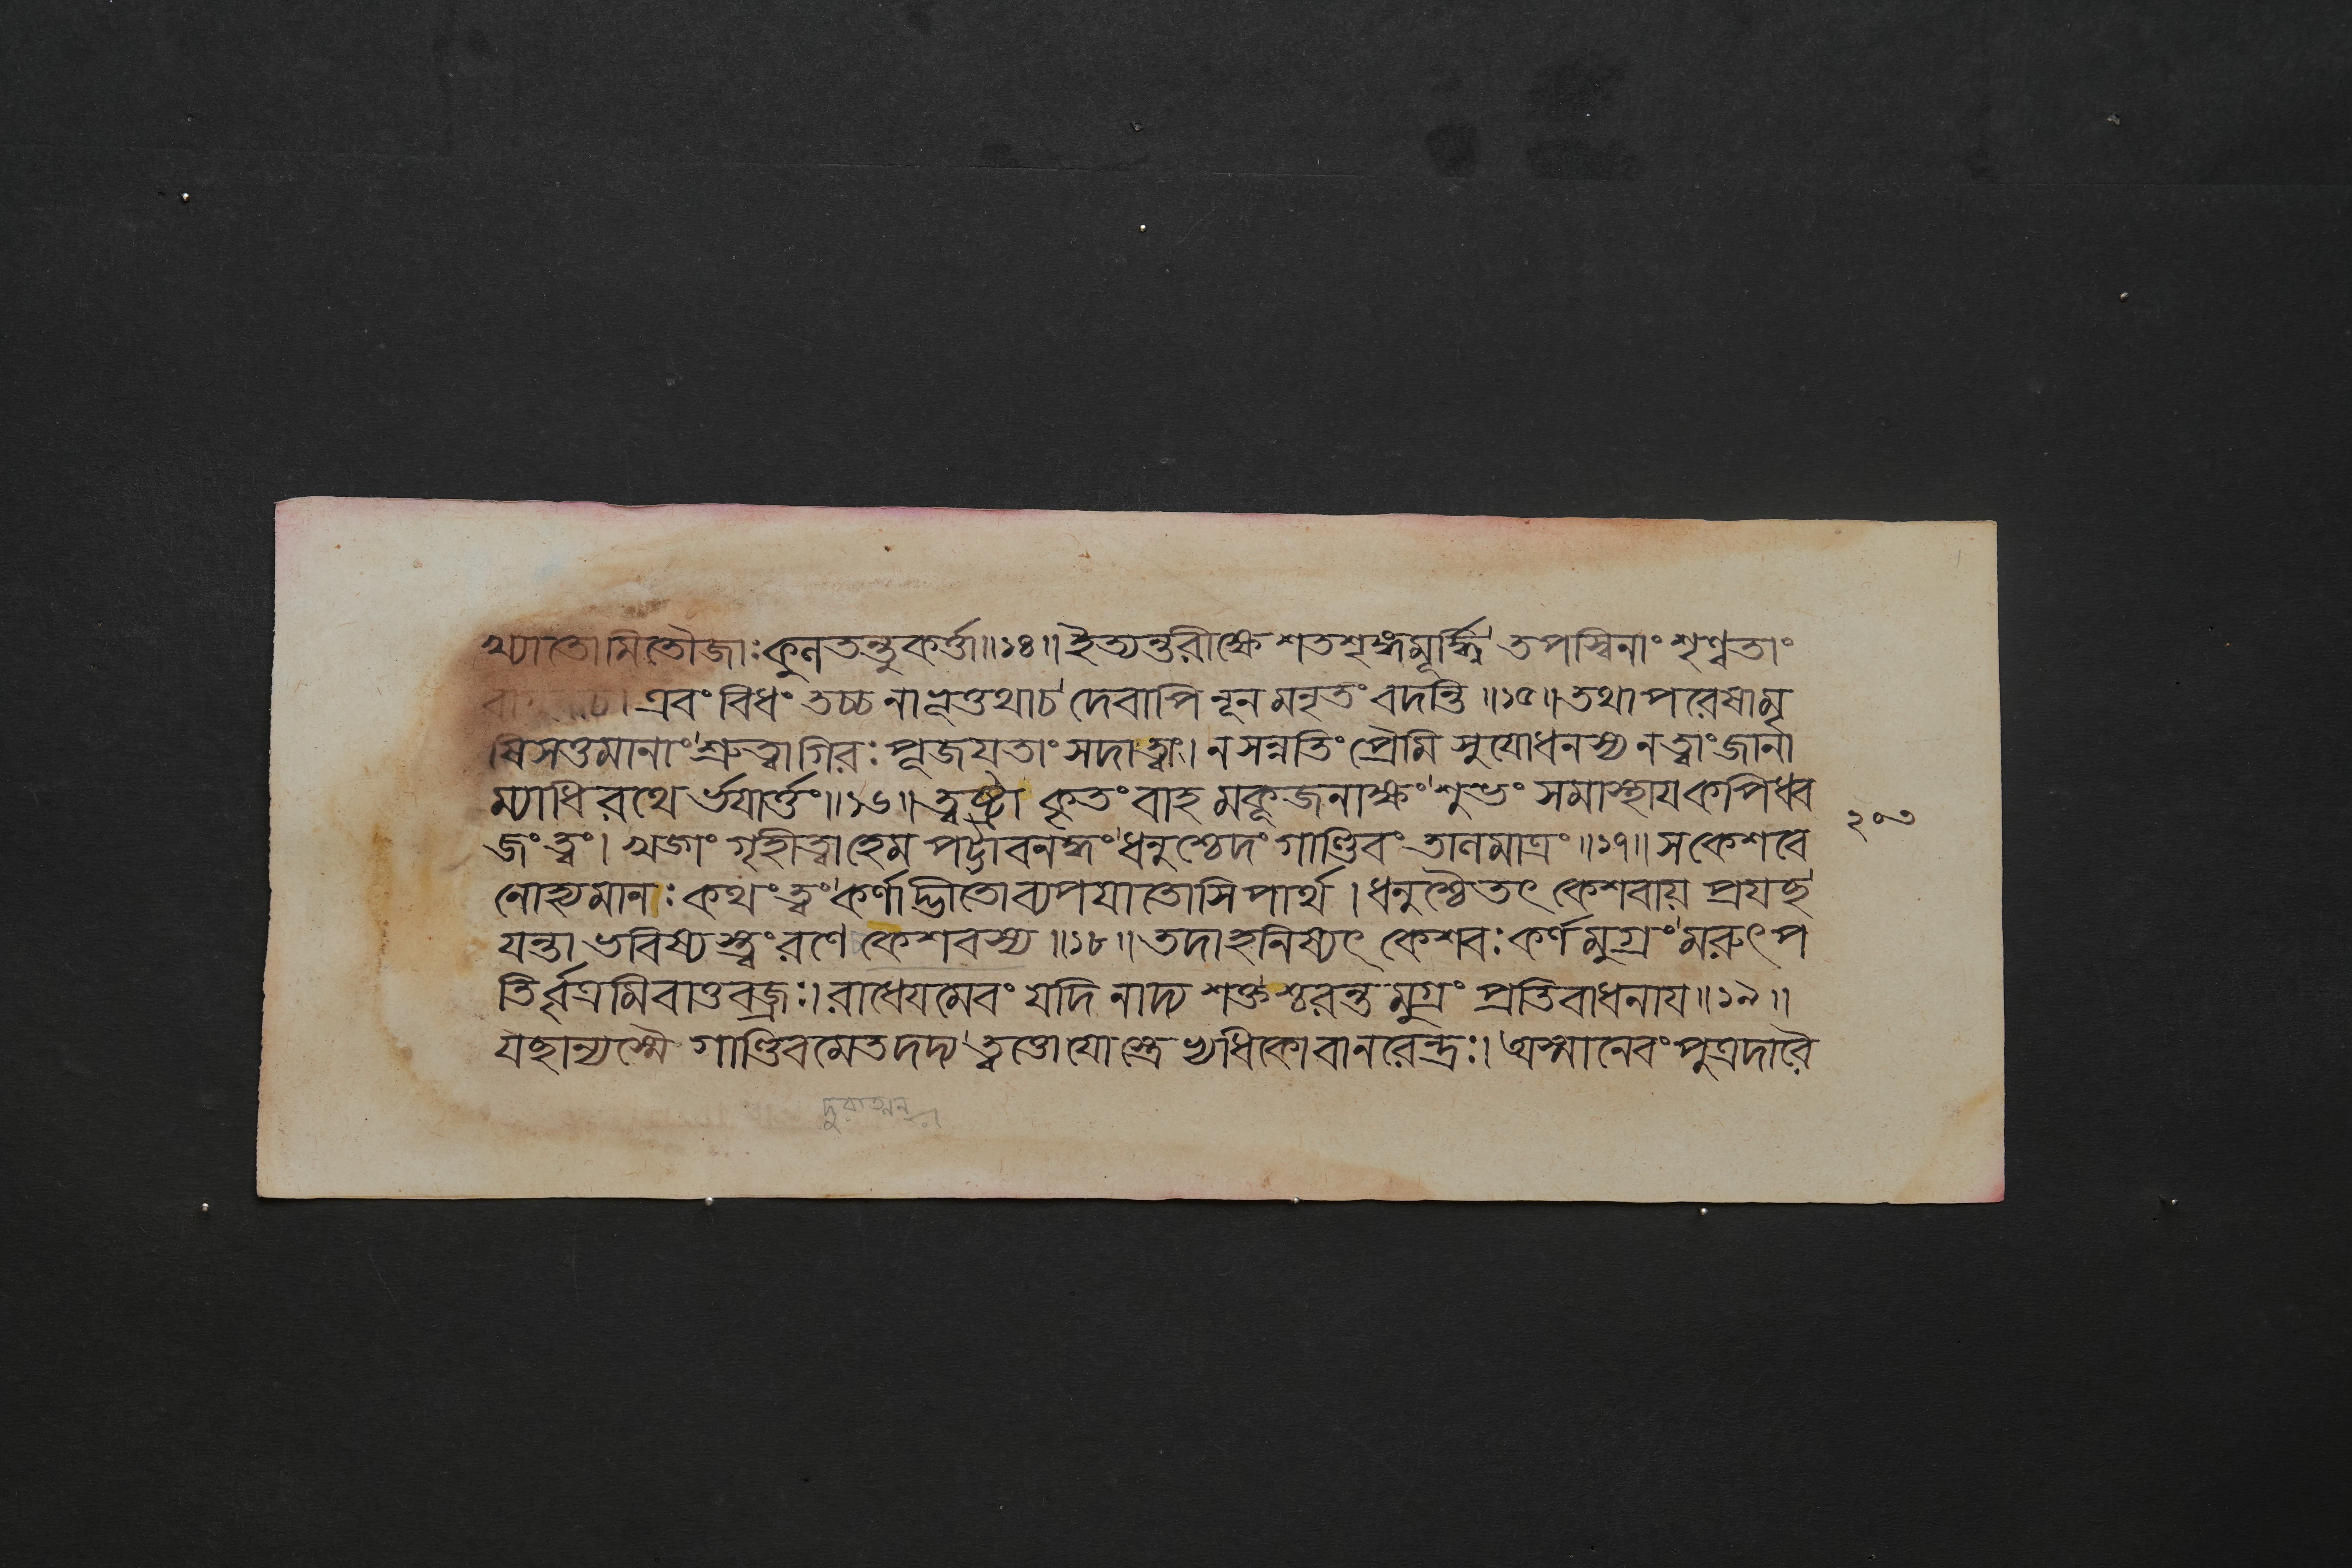 খ্যাতোমিতৌজাঃকুণতন্তুকর্ত্তা॥১৪॥ইত্যন্তরীক্ষে শতশৃঙ্গমূর্দ্ধ্নি তপস্বিনাং শৃণ্বতাং
এবং বিধং তচ্চ নাভূত্তথাচ দেবাপি নূন মনৃতং বদন্তি॥১৫॥তথাপরেষামৃ
ষিসত্তমানাং শ্রুত্বাগিরঃ পূজযতাং সদাত্বাং।ন সন্নতিং প্রৈমি সুযোধনস্য নত্বাং জানা
ম্যাধিরথে র্ভযার্ত্তং॥১৬॥ত্বষ্ট্রা কৃতং বাহ মকূজনাক্ষং শুভং সমাস্থাযকপিধ্ব
জং ত্বং। খড়্গং গৃহীত্বাহেম পট্টাবনদ্ধং ধনুশ্চেদং গাণ্ডিবং তালমাত্রং॥১৭॥সকেশবে
নোহ্যমানঃ কথং ত্বং কর্ণাদ্ভীতোব্যপযাতোসিপার্থ।ধনুশ্চৈতৎ কেশবায় প্রযচ্ছ
যন্তা ভবিষ্য স্ত্বং রণে কেশবস্য॥১৮॥তদাহনিষ্যৎ কেশবঃ কর্ণমুগ্রং মরুৎপ
তির্বৃত্রমিবাত্তবজ্রঃ।রাধেযমেবং যদি নাদ্য শক্তশ্চরন্ত মুগ্রং প্রতিবাধনায॥১৯॥
যচ্ছান্যস্মৈ গাণ্ডিবমেতদদ্য ত্বত্তো যোস্ত্রে ষ্বধিকোবানরেন্দ্রঃ। অস্মানেবং পুত্রদারৈ
২০৩
দুরাত্মন্